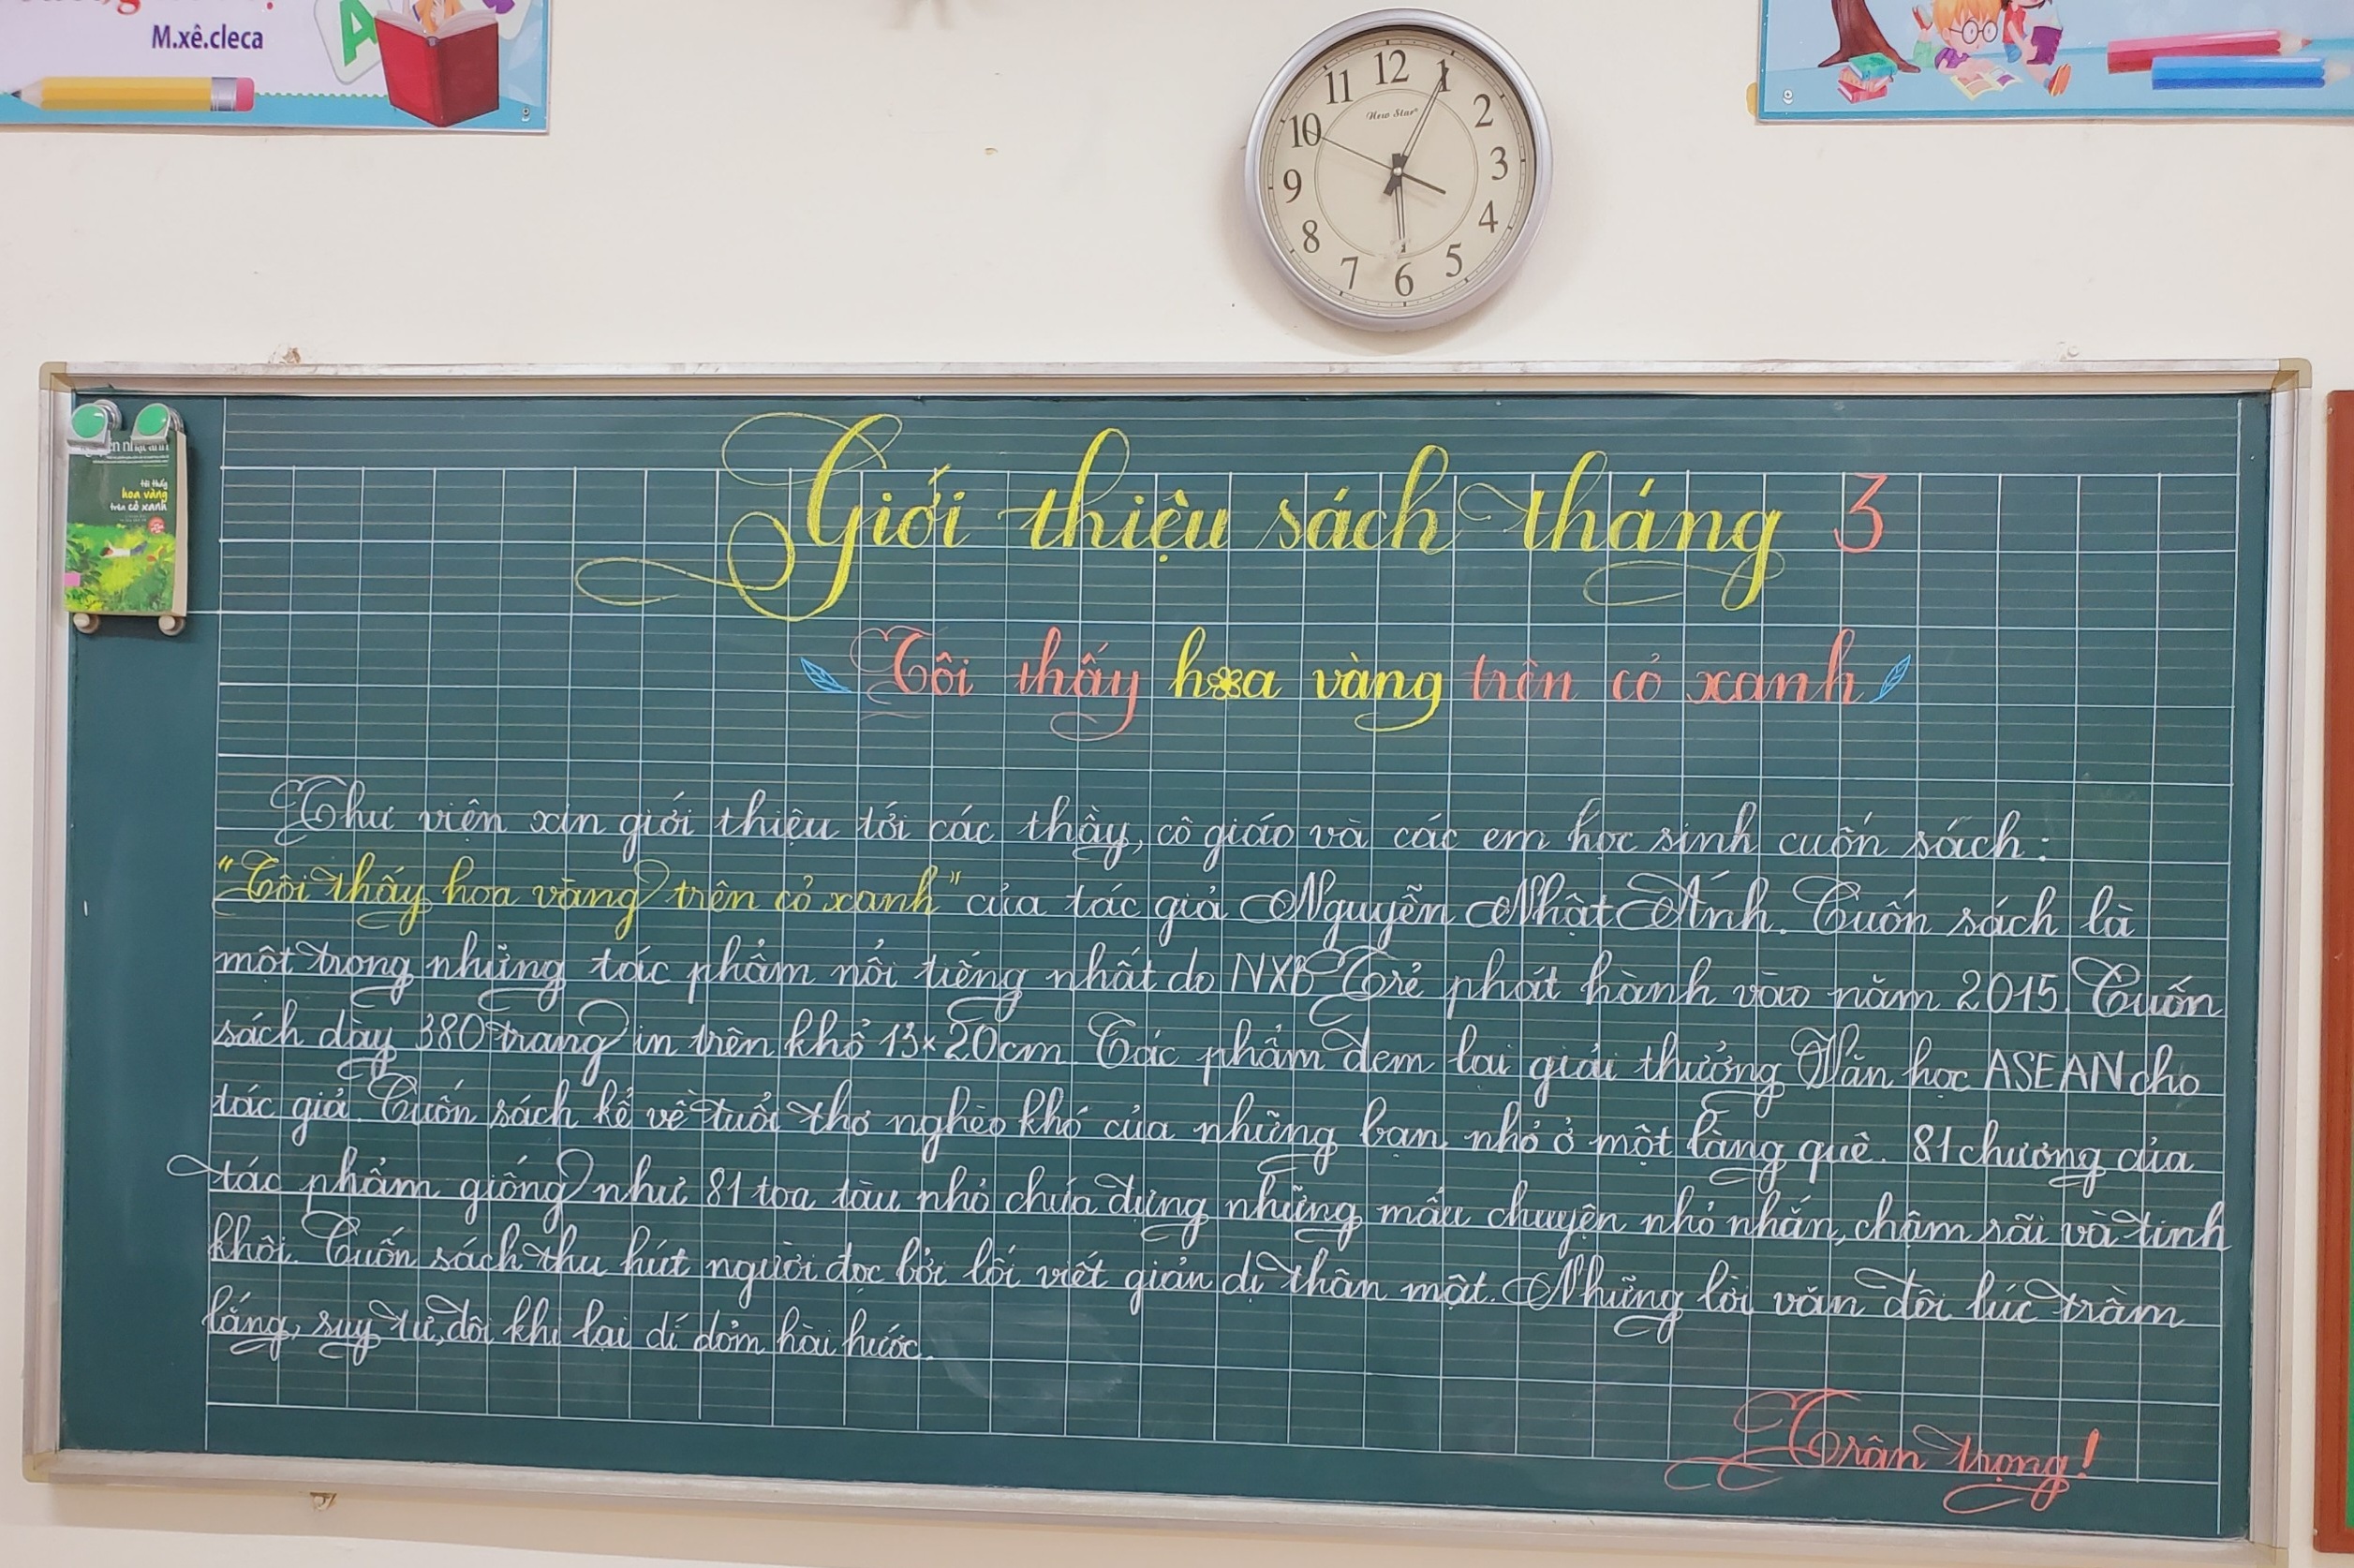 M.xê.cleca
12
1
2
3
4
5
6
7
8
9
10
11
New Star
tôi thấy
hoa vàng
trên cỏ xanh
Giới thiệu sách tháng 3
Tôi thấy hoa vàng trên cỏ xanh
Thư viện xin giới thiệu tới các thầy, cô giáo và các em học sinh cuốn sách:
"Tôi thấy hoa vàng trên cỏ xanh" của tác giả Nguyễn Nhật Ánh. Cuốn sách là
một trong những tác phẩm nổi tiếng nhất do NXB Trẻ phát hành vào năm 2015. Cuốn
sách dày 380 trang in trên khổ 13x20cm. Tác phẩm đem lại giải thưởng Văn học ASEAN cho
tác giả. Cuốn sách kể về tuổi thơ nghèo khó của những bạn nhỏ ở một làng quê. 81 chương của
tác phẩm giống như 81 toa tàu nhỏ chứa đựng những mẩu chuyện nhỏ nhắn, chậm rãi và tinh
khôi. Cuốn sách thu hút người đọc bởi lối viết giản dị thân mật. Những lời văn đôi lúc trầm
lắng, suy tư, đôi khi lại dí dỏm hài hước.
Trân trọng!